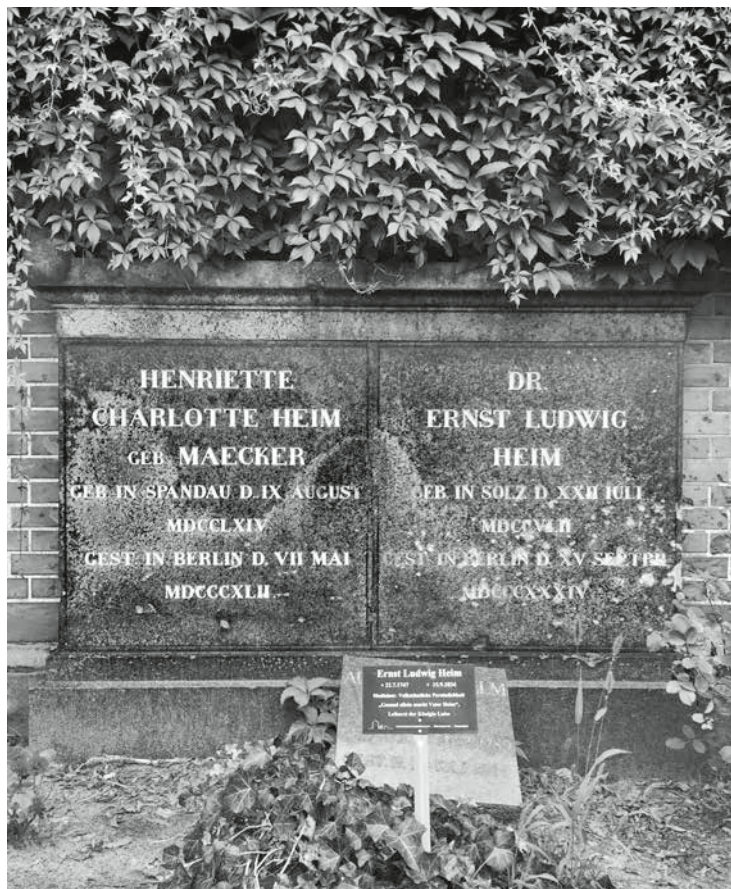 HENRIETTE
CHARLOTTE HEIM
GEB. MAECKER
GEB IN SPANDAU D. IX AUGUST
MDCCLXIV
GEST: IN BERLIN D. VII MAI
MDCCCXLII
DR.
ERNST LUDWIG
HEIM
GEB. IN SOLZ D. XXII IULI
MDCCVLII
GEST: IN BERLIN D. XV SEPTBR
MDCCCXXXIV
Ernst Ludwig Heim
* 22.7.1747 + 15.9.1834
Mediziner. Volkstümliche Persönlichkeit
„Gesund allein macht Vater Heim“.
Leibarzt der Königin Luise